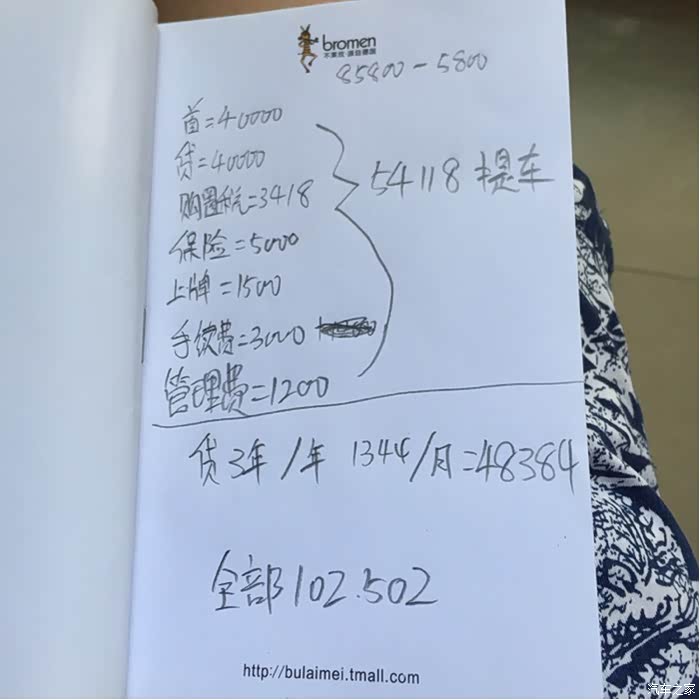 bromen
不莱玫·源自德国
85800-5800
首=40000
贷=40000
购置税=3418
保险=5000
上牌=1500
手续费=3000
管理费=1200
54118 提车
贷3年/年 1344/月=48384
全部102.502
http://bulaimei.tmall.com
汽车之家